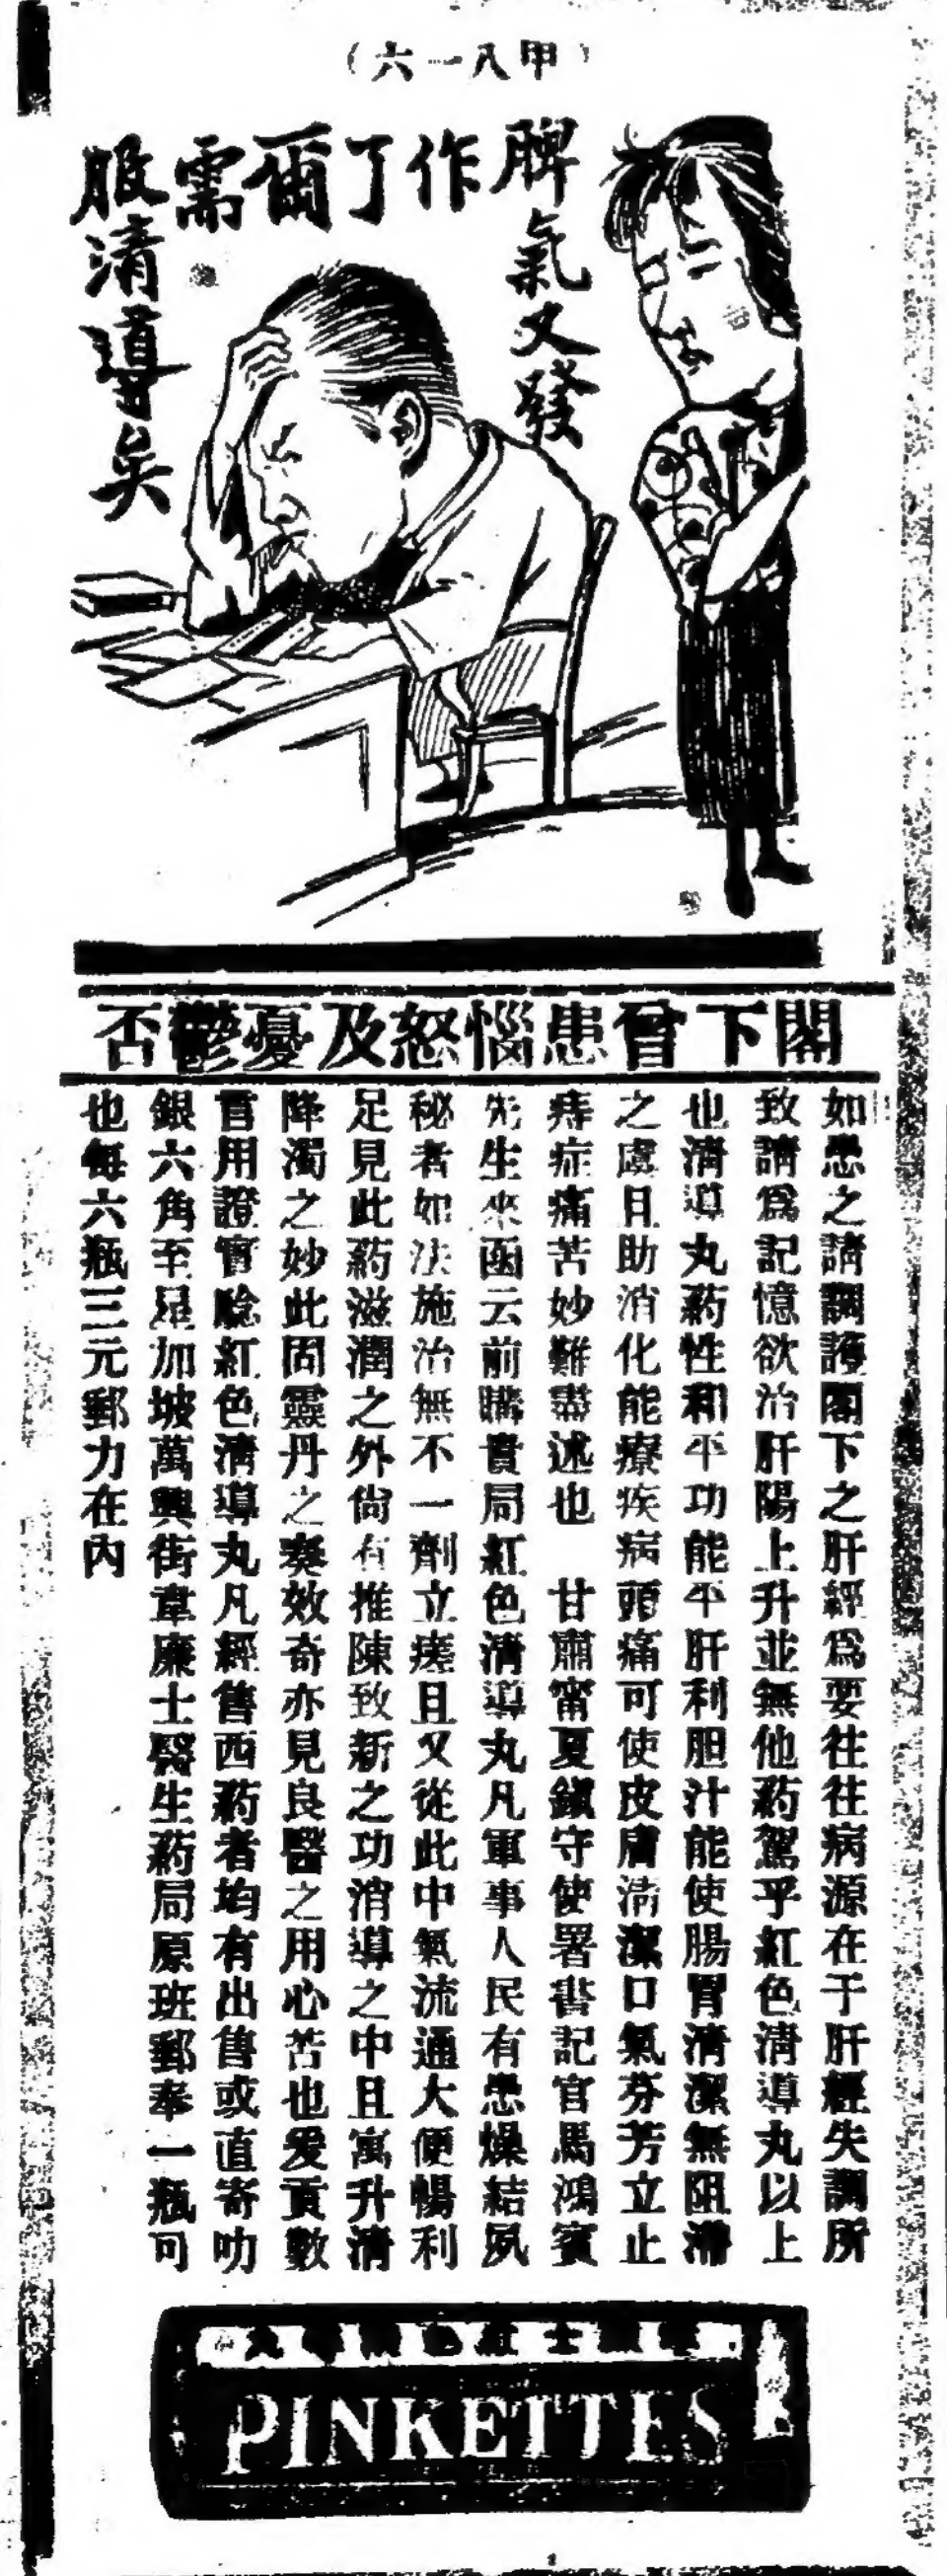 （甲八一六）
脾氣又發
作了爾需
服清導矣
閣下曾患惱怒及憂鬱否
如患之請調護閣下之肝經爲要往往病源在于肝經失調所
致請爲記憶欲治肝陽上升並無他药駕乎紅色淸導丸以上
也淸導丸药性和平功能平肝利胆汁能使腸胃淸潔無阻滯
之虞且助消化能療疾病頭痛可使皮膚淸潔口氣芬芳立止
痔症痛苦妙難盡述也　甘肅甯夏鎭守使署書記官馬鴻賓
先生來函云前購貴局紅色淸導丸凡軍事人民有患燥結夙
秘者如法施治無不一劑立瘥且又從此中氣流通大便暢利
足見此药滋潤之外尙有推陳致新之功消導之中且寓升淸
降濁之妙此固靈丹之奏效奇亦見良醫之用心苦也爰貢數
言用證實騐紅色淸導丸凡經售西药者均有出售或直寄叻
銀六角至星加坡萬興街韋廉士醫生药局原班郵奉一瓶可
也每六瓶三元郵力在內
PINKETTES